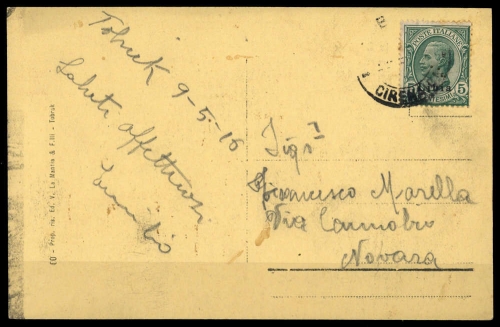 Tobruk 9-5-16
Saluti affettuosi
Sig.r
Francesco Marella
Via Cannobio
Novara
POSTE ITALIANE
5
CIRENA
(1) - Prop. ris. Ed. V. La Mantra & F.lli - Tobruk